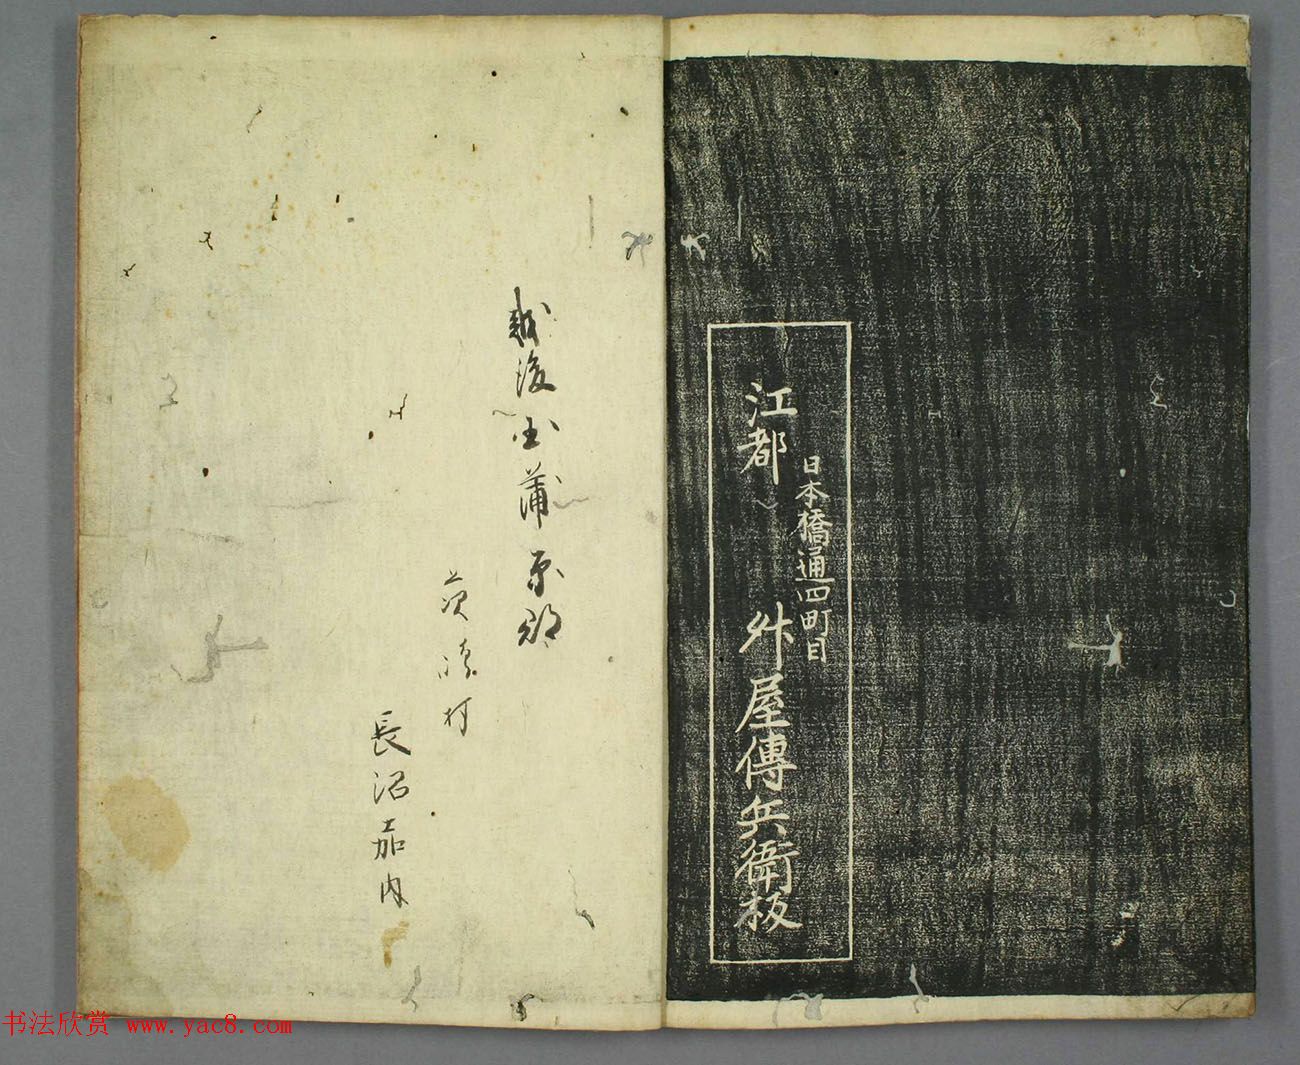 江都
日本橋通四町目
舛屋傳兵衛板
越後国蒲原郡
村
長沼嘉内
书法欣赏 www.yac8.com